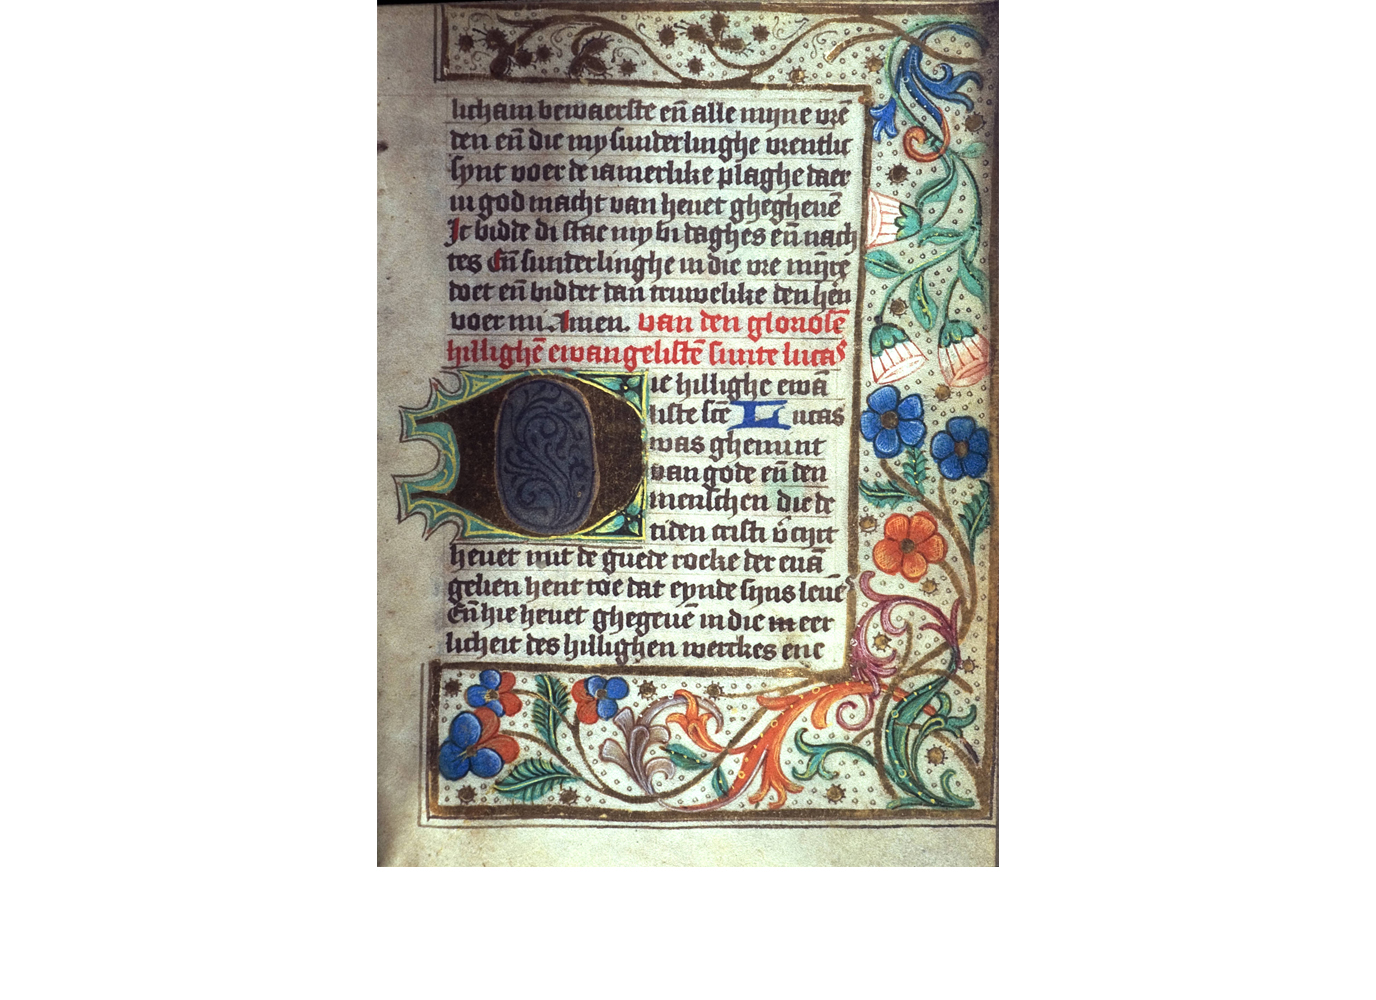 licham bewaerste en̄ alle mijne vrē
den en̄ die my sunderlinghe vrentlic
synt voer de iamerlike plaghe daer
in god macht van heuet ghegheuē
Ic bidde di stae my bi daghes en̄ nach
tes En̄ sunderlinghe in die vre mijre
doet en̄ biddet dan truwelike den hēn
voer mi. Amen. van den gloriosē
hillighē ewangelistē sunte lucas
ie hillighe ewā
liste scē Lucas
was ghemint
van gode en̄ den
menschen die de
tiden cristi v̄ cyrt
heuet mit de guede rocke der euā
gelien hent toe dat eynde syns leuē
En̄ hie heuet ghegeuē in die m eer
licheit des hillighen werckes ene